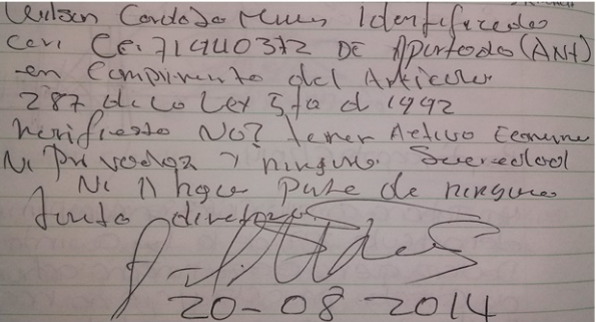 Wilson Cordoba Mena Identificado
con CC. 71940372 DE Apartado (ANT)
en Cumplimento del Articulo
287 de la Ley 5ta d 1992
Manifiesto No? tener Activo Economi
Ni Privados y ninguna Sociedad
Ni hago parte de ninguna
Junta directiva
20-08 2014